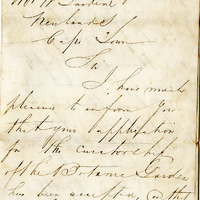 Newlands
Cape Town
Sir
I have much
pleasure to inform you
that your application
for the curatorship
of the Botanic Garden
has been accepted, on the